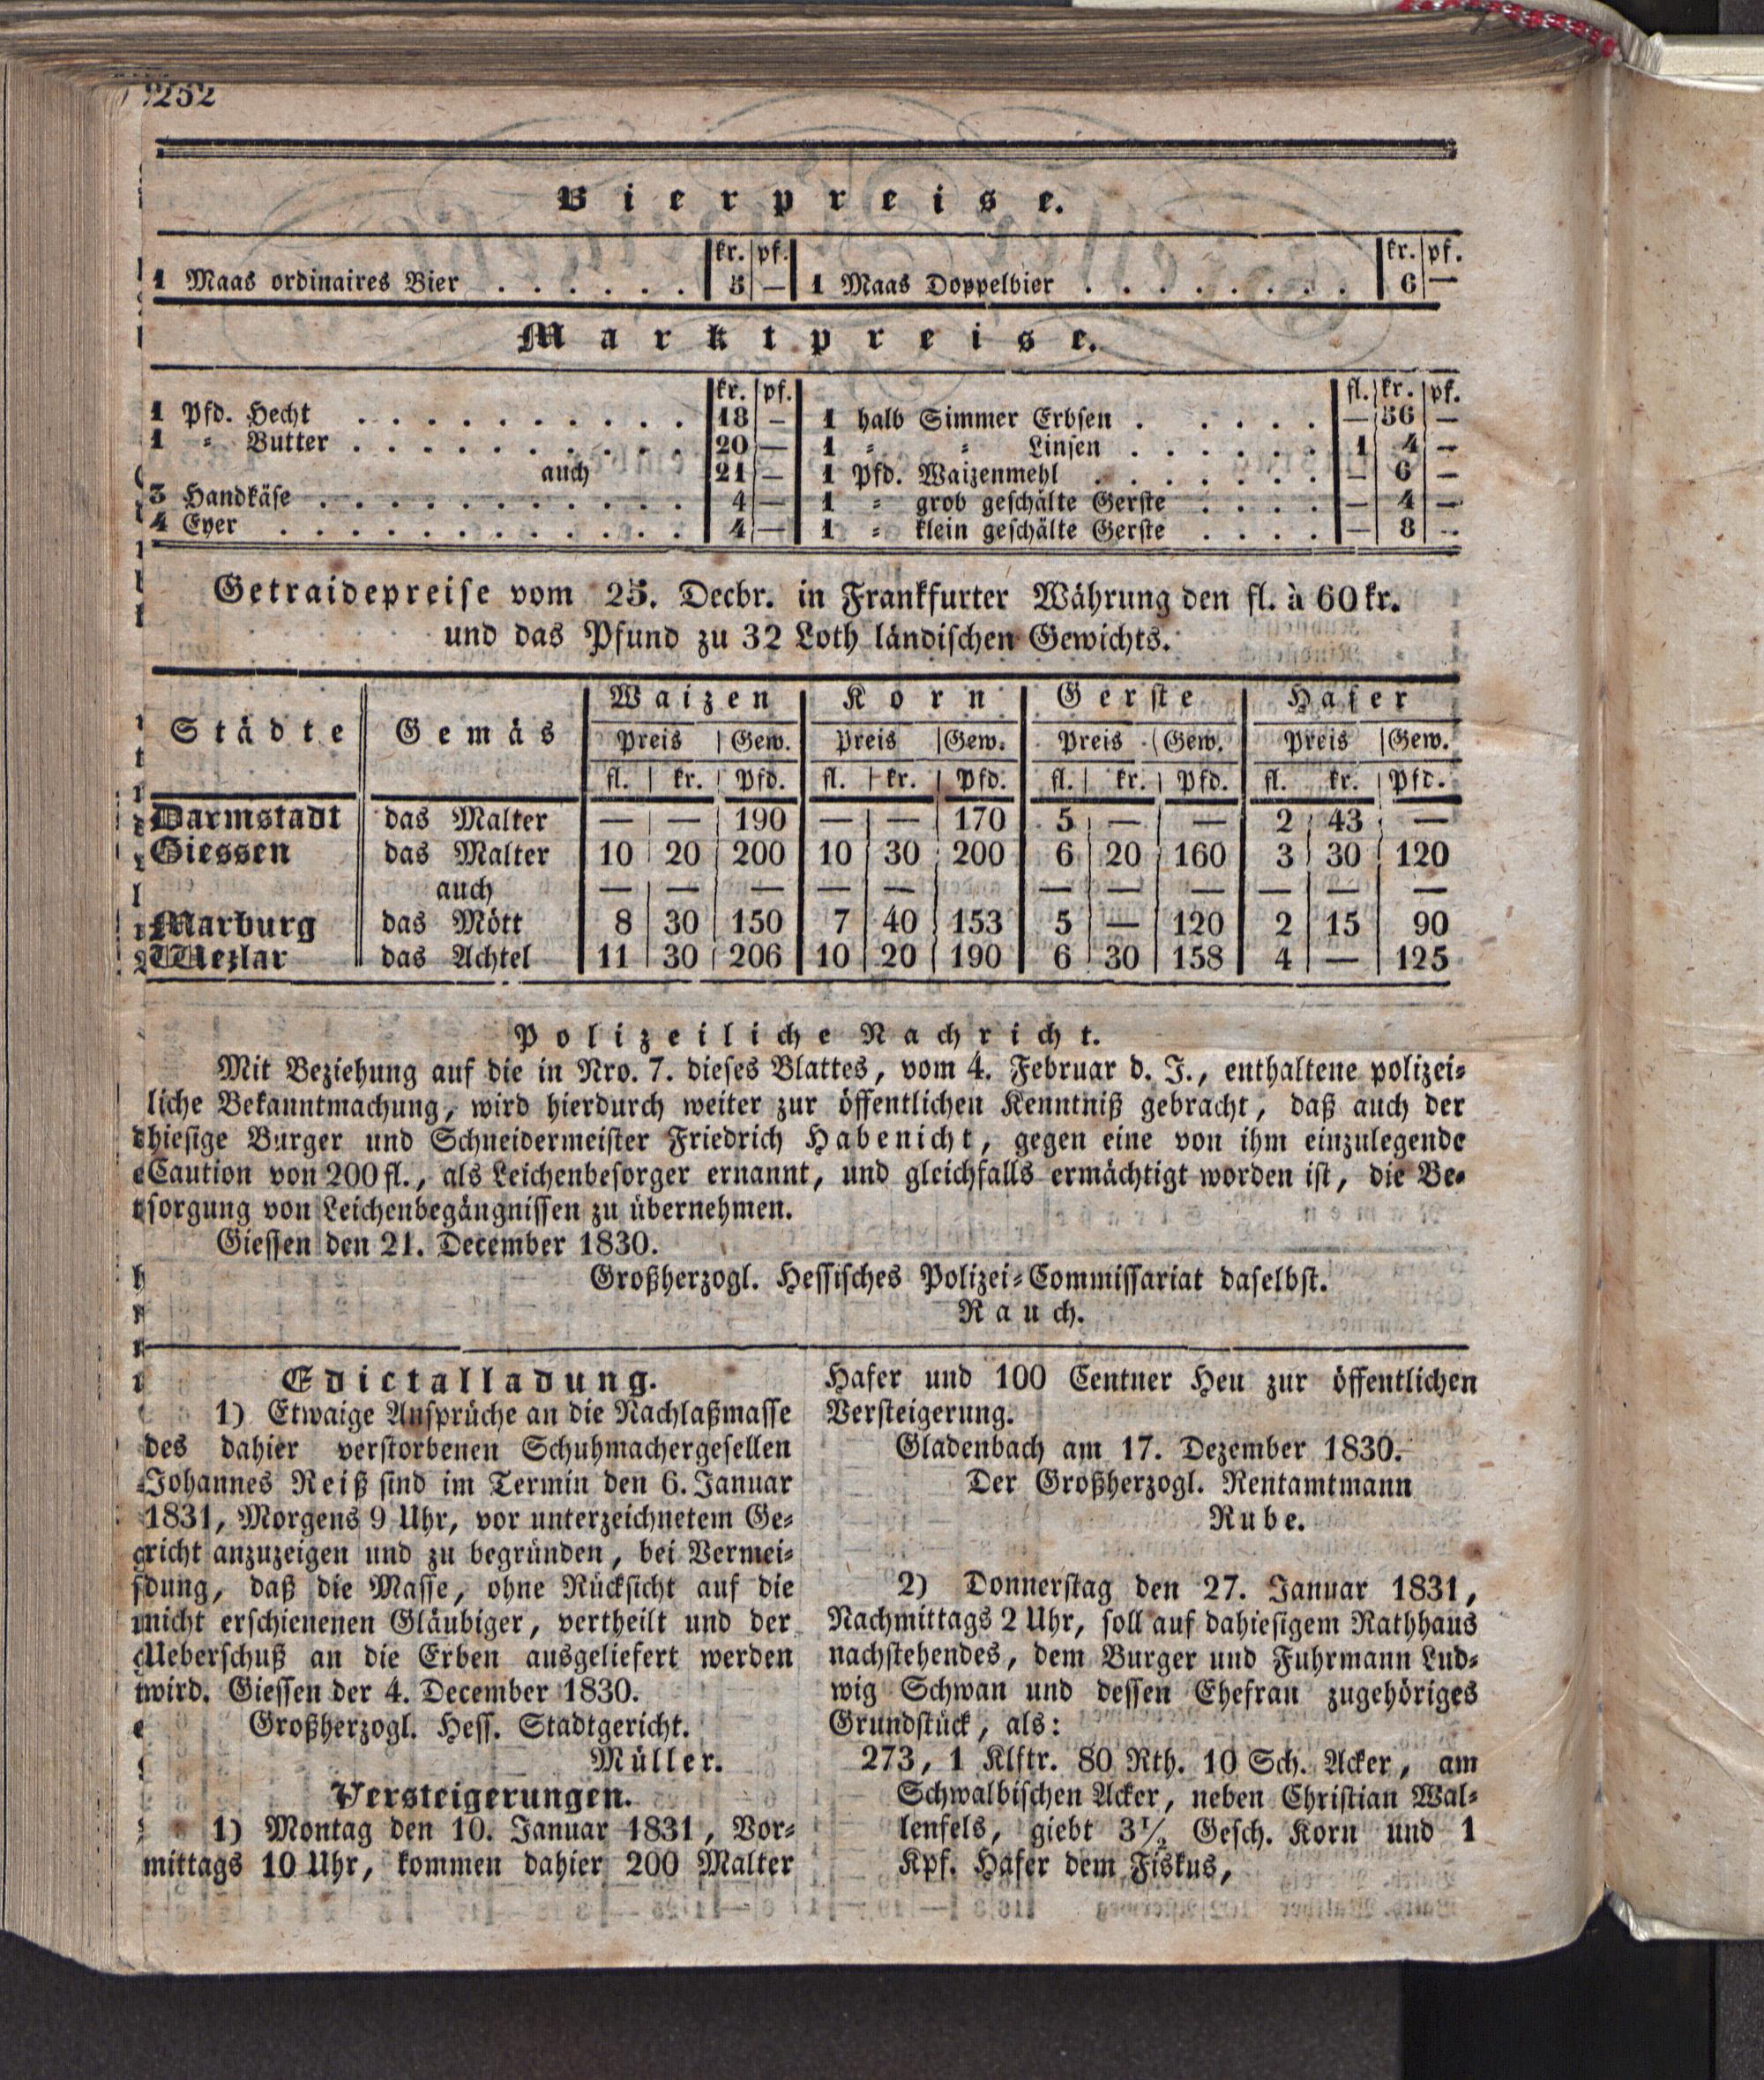 252
Bierpreise.
kr. pf. kr. pf.
1 Maas ordinaires Bier . . . . . . 5 — 1 Maas Doppelbier . . . . . . . . 6 —
Marktpreise.
kr. pf. fl. kr. pf.
1 Pfd. Hecht . . . . . . . . . . 18 — 1 halb Simmer Erbsen . . . . . — 56 —
1 " Butter . . . . . . . . . . 20 — 1 " " Linsen . . . . . . 1 4 —
auch 21 — 1 Pfd. Waizenmehl . . . . . . . — 6 —
3 Handkäse . . . . . . . . . . . 4 — 1 " grob geschälte Gerste . . . . — 4 —
4 Eyer . . . . . . . . . . . . . 4 — 1 " klein geschälte Gerste . . . . — 8 —
Getraidepreise vom 25. Decbr. in Frankfurter Währung den fl. à 60 kr.
und das Pfund zu 32 Loth ländischen Gewichts.
Städte Gemäs Waizen Korn Gerste Hafer
Preis Gew. Preis Gew. Preis Gew. Preis Gew.
fl. kr. Pfd. fl. kr. Pfd. fl. kr. Pfd. fl. kr. Pfd.
Darmstadt das Malter — — 190 — — 170 5 — — 2 43 —
Giessen das Malter 10 20 200 10 30 200 6 20 160 3 30 120
auch — — — — — — — — — — —
Marburg das Mött 8 30 150 7 40 153 5 — 120 2 15 90
Wezlar das Achtel 11 30 206 10 20 190 6 30 158 4 — 125
Polizeiliche Nachricht.
Mit Beziehung auf die in Nro. 7. dieses Blattes, vom 4. Februar d. J., enthaltene polizei-
liche Bekanntmachung, wird hierdurch weiter zur öffentlichen Kenntniß gebracht, daß auch der
hiesige Burger und Schneidermeister Friedrich Habenicht, gegen eine von ihm einzulegende
Caution von 200 fl., als Leichenbesorger ernannt, und gleichfalls ermächtigt worden ist, die Be-
sorgung von Leichenbegängnissen zu übernehmen.
Giessen den 21. December 1830.
Großherzogl. Hessisches Polizei-Commissariat daselbst.
Rauch.
Edictalladung.
1) Etwaige Ansprüche an die Nachlaßmasse
des dahier verstorbenen Schuhmachergesellen
Johannes Reiß sind im Termin den 6. Januar
1831, Morgens 9 Uhr, vor unterzeichnetem Ge-
richt anzuzeigen und zu begründen, bei Vermei-
dung, daß die Masse, ohne Rücksicht auf die
nicht erschienenen Gläubiger, vertheilt und der
Ueberschuß an die Erben ausgeliefert werden
wird. Giessen der 4. December 1830.
Großherzogl. Hess. Stadtgericht.
Müller.
Versteigerungen.
1) Montag den 10. Januar 1831, Vor-
mittags 10 Uhr, kommen dahier 200 Malter
Hafer und 100 Centner Heu zur öffentlichen
Versteigerung.
Gladenbach am 17. Dezember 1830.
Der Großherzogl. Rentamtmann
Rube.
2) Donnerstag den 27. Januar 1831,
Nachmittags 2 Uhr, soll auf dahiesigem Rathhaus
nachstehendes, dem Burger und Fuhrmann Lud-
wig Schwan und dessen Ehefrau zugehöriges
Grundstück, als:
273, 1 Klftr. 80 Rth. 10 Sch. Acker, am
Schwalbischen Acker, neben Christian Wal-
lenfels, giebt 3½ Gesch. Korn und 1
Kpf. Hafer dem Fiskus,